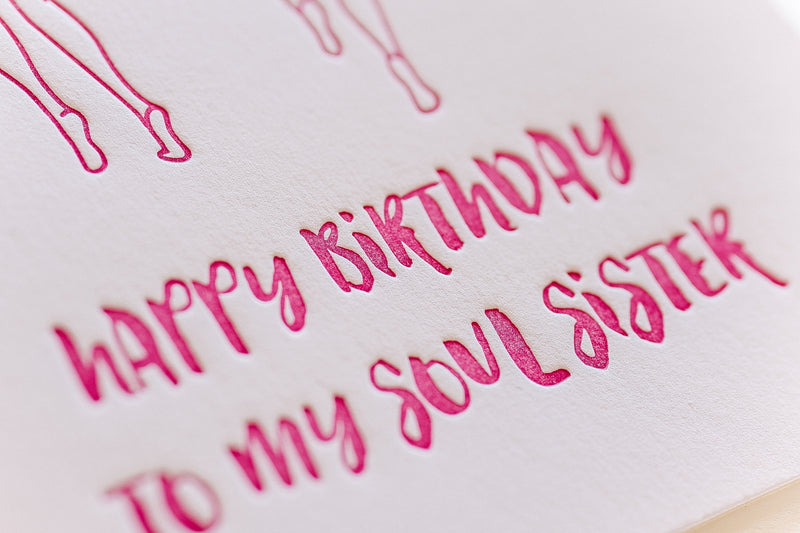 HAPPY BiRTHDAY
TO MY SOUL SiSTER